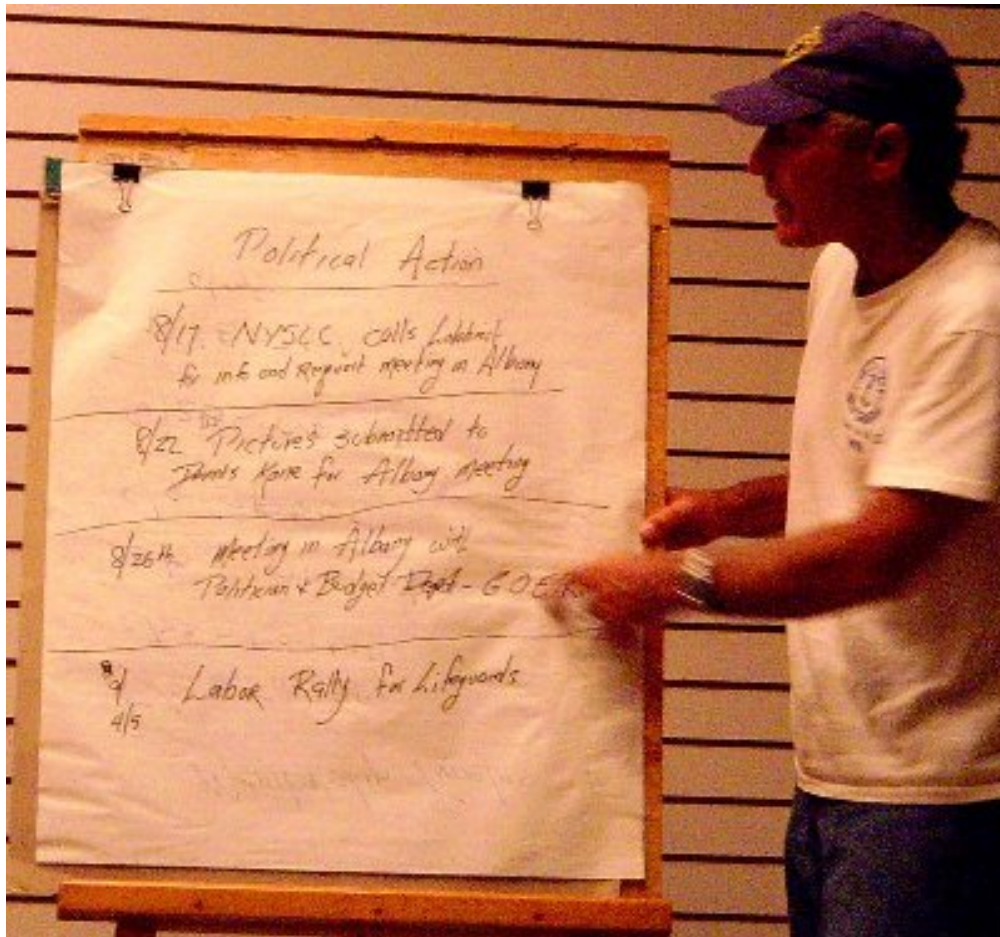 Political Action
8/17 NYSLC calls
for info and request meeting in Albany
8/22 Pictures submitted to
Dennis Kane for Albany Meeting
8/26th Meeting in Albany with
Politician & Budget Dept - GOER
9/
4/5
Labor Rally for Lifeguards